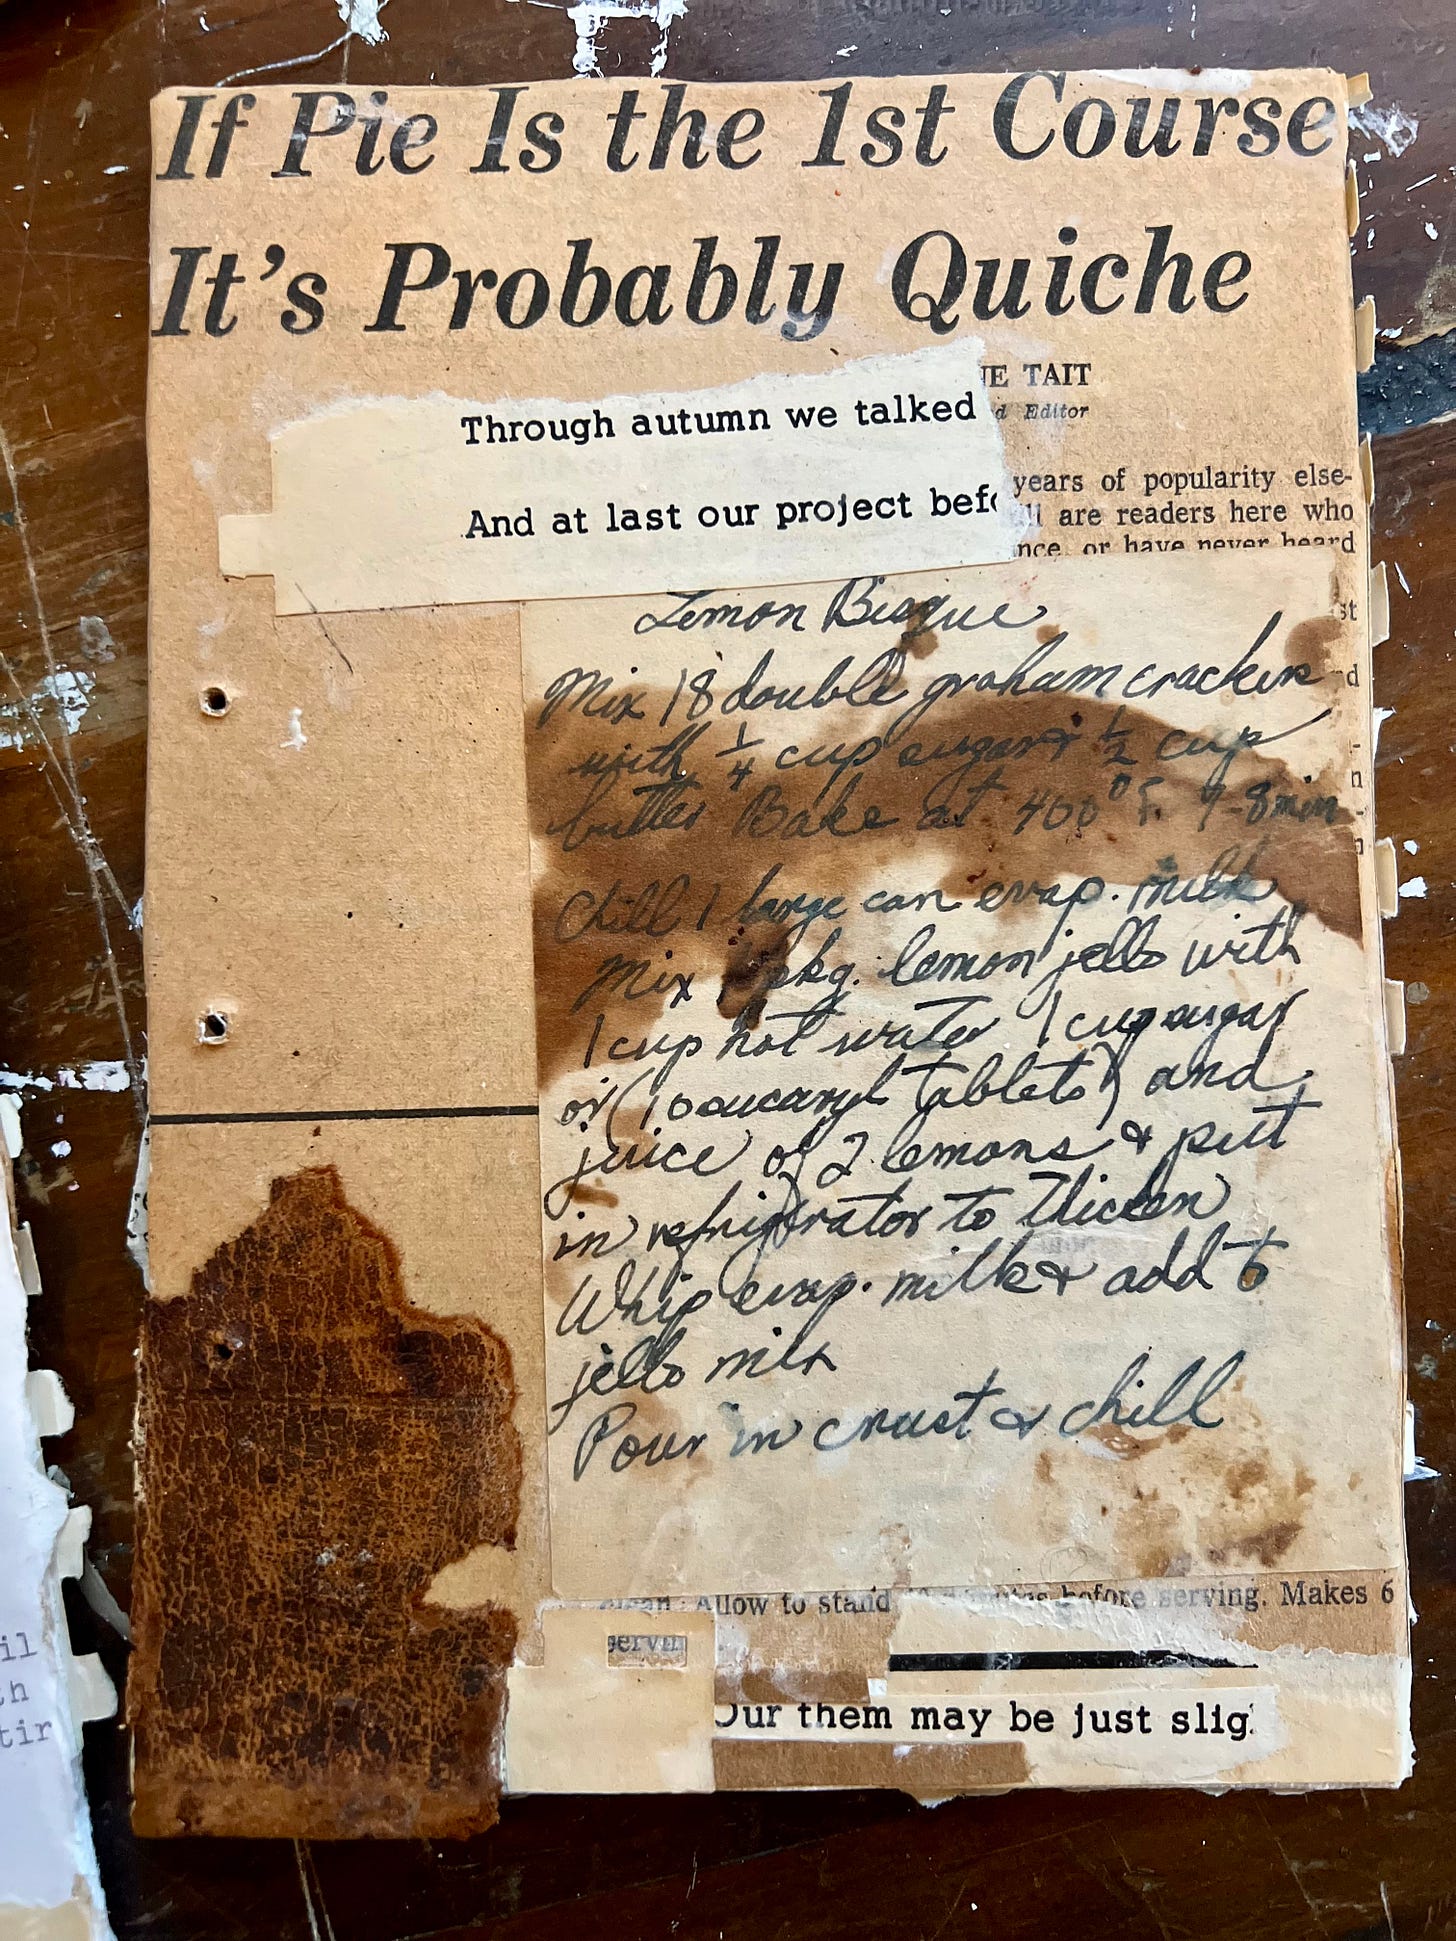 If Pie Is the 1st Course
It's Probably Quiche
NE TAIT
d Editor
Through autumn we talked
years of popularity else-
And at last our project befo
all are readers here who
nce, or have never heard
Lemon Bisque
st
Mix 18 double graham crackers
d
with 1/4 cup sugar & 1/2 cup
butter Bake at 400° F. 7-8 min
Chill 1 large can evap. milk
Mix 1 pkg. lemon jello with
1 cup hot water 1 cup sugar
or (10 sucaryl tablets) and
juice of 2 lemons & put
in refrigerator to thicken
Whip evap. milk & add to
jello mix
Pour in crust & chill
Allow to stand before serving. Makes 6
servin
Our them may be just slig
il
th
tir